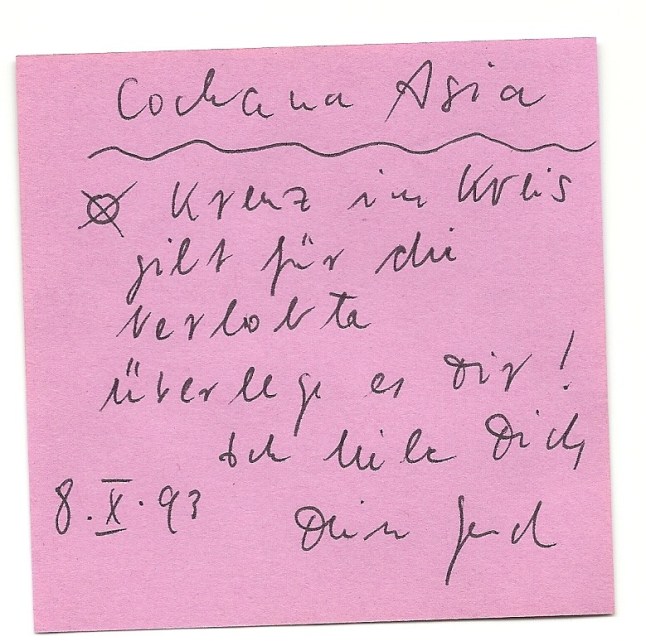 Cochana Asia
Kreuz im Kreis
gilt für die
Verlobte
überlege es Dir!
Ich liebe Dich
8.X.93 Dein